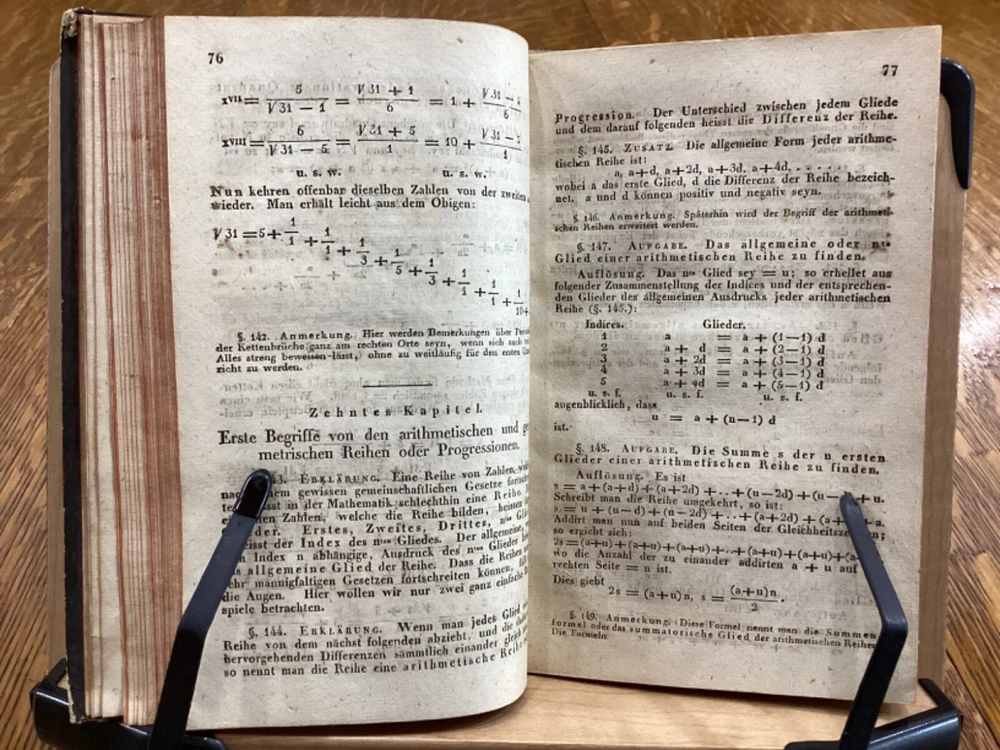 76
XVII = 5 / (√31 − 1) = (√31 + 1) / 6 = 1 + (√31 − / 6
XVIII = 6 / (√31 − 5) = (√31 + 5) / 1 = 10 + (√31 − / 1
u. s. w. u. s. w.
Nun kehren offenbar dieselben Zahlen von der zweiten
wieder. Man erhält leicht aus dem Obigen:
√31 = 5 + 1/1 + 1/1 + 1/3 + 1/5 + 1/3 + 1/1 + 1/1 + 1/10+
§. 142. Anmerkung. Hier werden Bemerkungen über
der Kettenbrüche ganz am rechten Orte seyn, wenn sich auch
Alles streng beweisen lässt, ohne zu weitläufig für den ersten
zicht zu werden.
Zehntes Kapitel.
Erste Begriffe von den arithmetischen und
metrischen Reihen oder Progressionen.
3. ERKLÄRUNG. Eine Reihe von Zahlen,
nem gewissen gemeinschaftlichen Gesetze
sst in der Mathematik schlechthin eine Reihe
nen Zahlen, welche die Reihe bilden, heissen
der. Erstes, Zweites, Drittes, nᵗᵉˢ
isst der Index des nᵗᵉⁿ Gliedes. Der allgemeine,
n Index n abhängige, Ausdruck des nᵗᵉⁿ Gliedes
allgemeine Glied der Reihe. Dass die Reihen
ehr mannigfaltigen Gesetzen fortschreiten können,
die Augen. Hier wollen wir nur zwei ganz einfache
spiele betrachten.
§. 144. ERKLÄRUNG. Wenn man jedes Glied
Reihe von dem nächst folgenden abzieht, und die
hervorgehenden Differenzen sämmtlich einander gleich
so nennt man die Reihe eine arithmetische Reihe
77
Progression. Der Unterschied zwischen jedem Gliede
und dem darauf folgenden heisst die Differenz der Reihe.
§. 145. ZUSATZ. Die allgemeine Form jeder arithme-
tischen Reihe ist:
a, a+d, a+2d, a+3d, a+4d, . . . .
wobei a das erste Glied, d die Differenz der Reihe bezeich-
net. a und d können positiv und negativ seyn.
§. 146. Anmerkung. Späterhin wird der Begriff der arithmeti-
schen Reihen erweitert werden.
§. 147. AUFGABE. Das allgemeine oder nᵗᵉ
Glied einer arithmetischen Reihe zu finden.
Auflösung. Das nᵗᵉ Glied sey = u; so erhellet aus
folgender Zusammenstellung der Indices und der entsprechen-
den Glieder des allgemeinen Ausdrucks jeder arithmetischen
Reihe (§. 145.):
Indices. Glieder.
1 a = a + (1—1) d
2 a + d = a + (2—1) d
3 a + 2d = a + (3—1) d
4 a + 3d = a + (4—1) d
5 a + 4d = a + (5—1) d
u. s. f. u. s. f. u. s. f.
augenblicklich, dass
u = a + (n—1) d
ist.
§. 148. AUFGABE. Die Summe s der n ersten
Glieder einer arithmetischen Reihe zu finden.
Auflösung. Es ist
s = a + (a+d) + (a+2d) + . . + (u—2d) + (u— + u.
Schreibt man die Reihe umgekehrt, so ist:
s = u + (u—d) + (u—2d) + . . + (a+2d) + (a+ a.
Addirt man nun auf beiden Seiten der Gleichheitsze n;
so ergiebt sich:
2s = (a+u) + (a+u) + (a+u) + . . + (a+u) + (a+u) + (a+
wo die Anzahl der zu einander addirten a + u auf
rechten Seite = n ist.
Dies giebt
2s = (a+u) n, s = (a+u)n / 2.
§. 149. Anmerkung. Diese Formel nennt man die Summen
formel oder das summatorische Glied der arithmetischen Reihen
Die Formeln